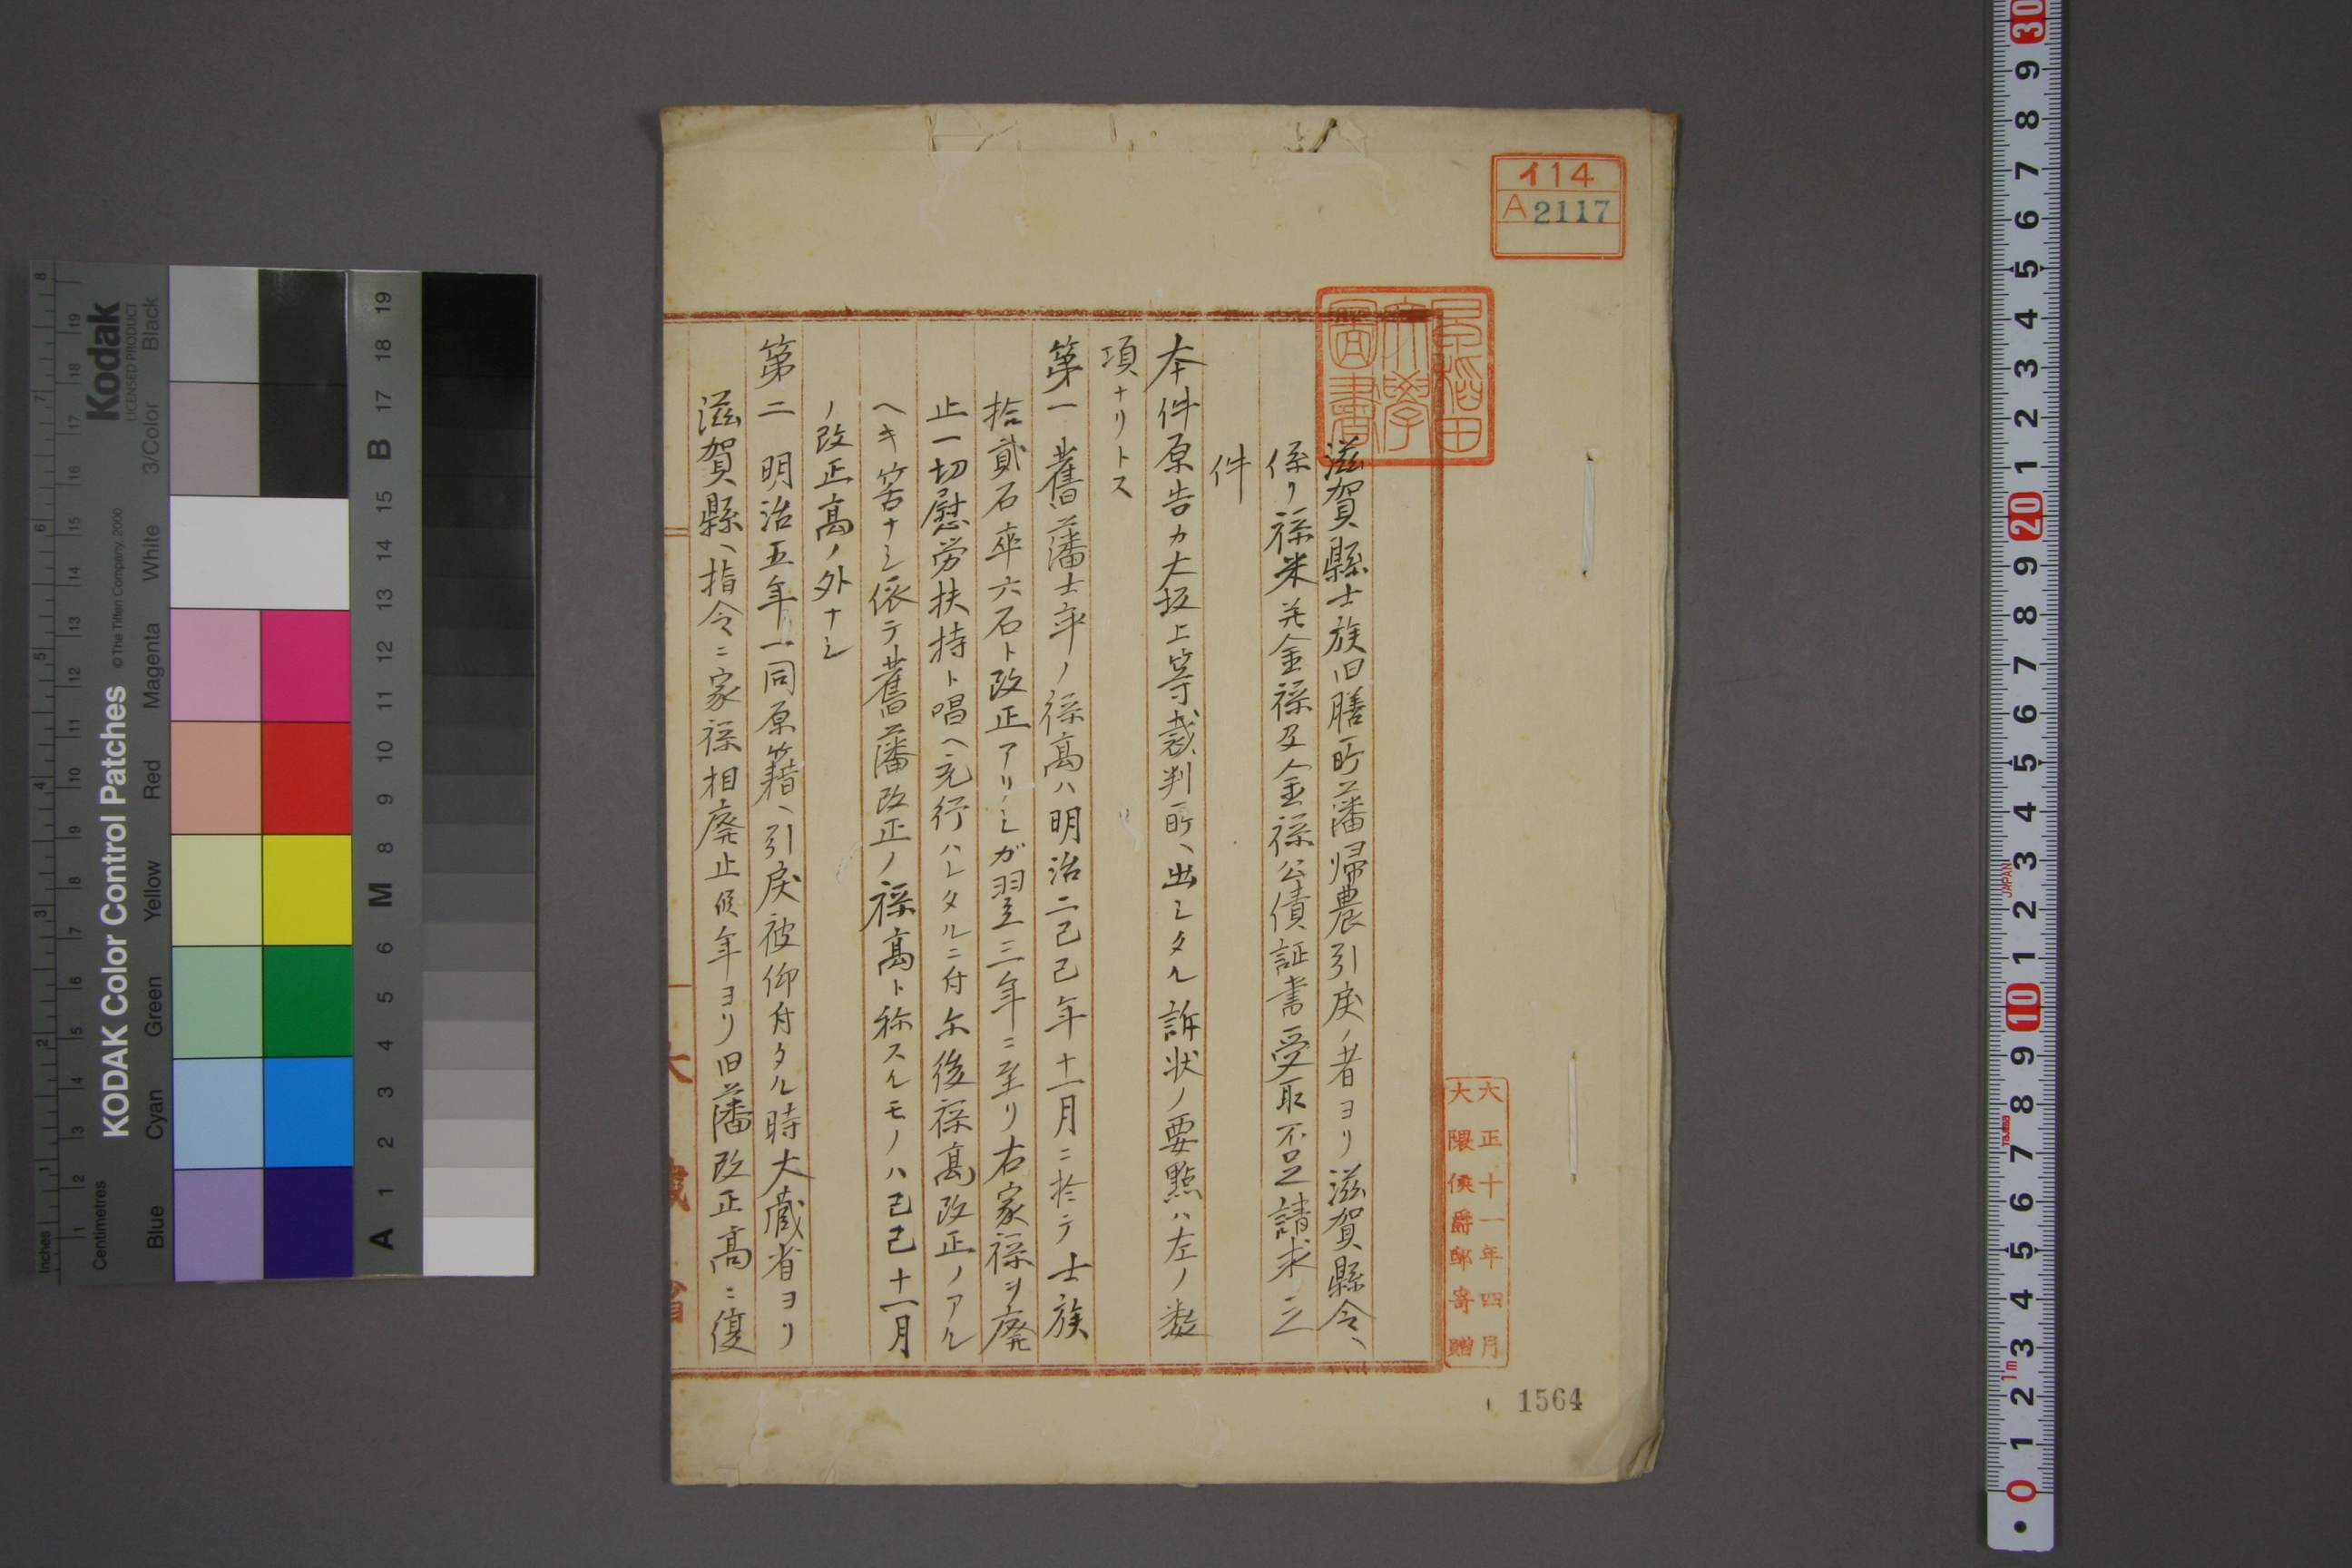 イ14
A2117
早稲田
大學
圖書
大正十一年四月
大隈侯爵邸寄贈
滋賀縣士族旧膳所藩帰農引戻ノ者ヨリ滋賀縣令ヘ
係リ禄米并金禄及金禄公債証書受取不足請求之
件
本件原告カ大坂上等裁判所ヘ出シタル訴状ノ要點ハ左ノ数
項ナリトス
第一 舊藩士卒ノ禄高ハ明治二己巳年十一月ニ於テ士族
拾貳石卒六石ト改正アリシガ翌三年ニ至リ右家禄ヲ廃
止一切慰労扶持ト唱ヘ宛行ハレタルニ付尓後禄高改正ノアル
ヘキ筈ナシ依テ舊藩改正ノ禄高ト称スルモノハ己巳十一月
ノ改正高ノ外ナシ
第二 明治五年一同原籍ヘ引戻被仰付タル時大蔵省ヨリ
滋賀縣ヘ指令ニ家禄相廃止候年ヨリ旧藩改正高ニ復
大蔵省
1564
KODAK Color Control Patches
© The Tiffen Company, 2000
Kodak
LICENSED PRODUCT
Inches
Centimetres
Blue
Cyan
Green
Yellow
Red
Magenta
White
3/Color
Black
A 1 2 3 4 5 6 M 8 9 10 11 12 13 14 15 B 17 18 19
JAPAN
Tajima
1m